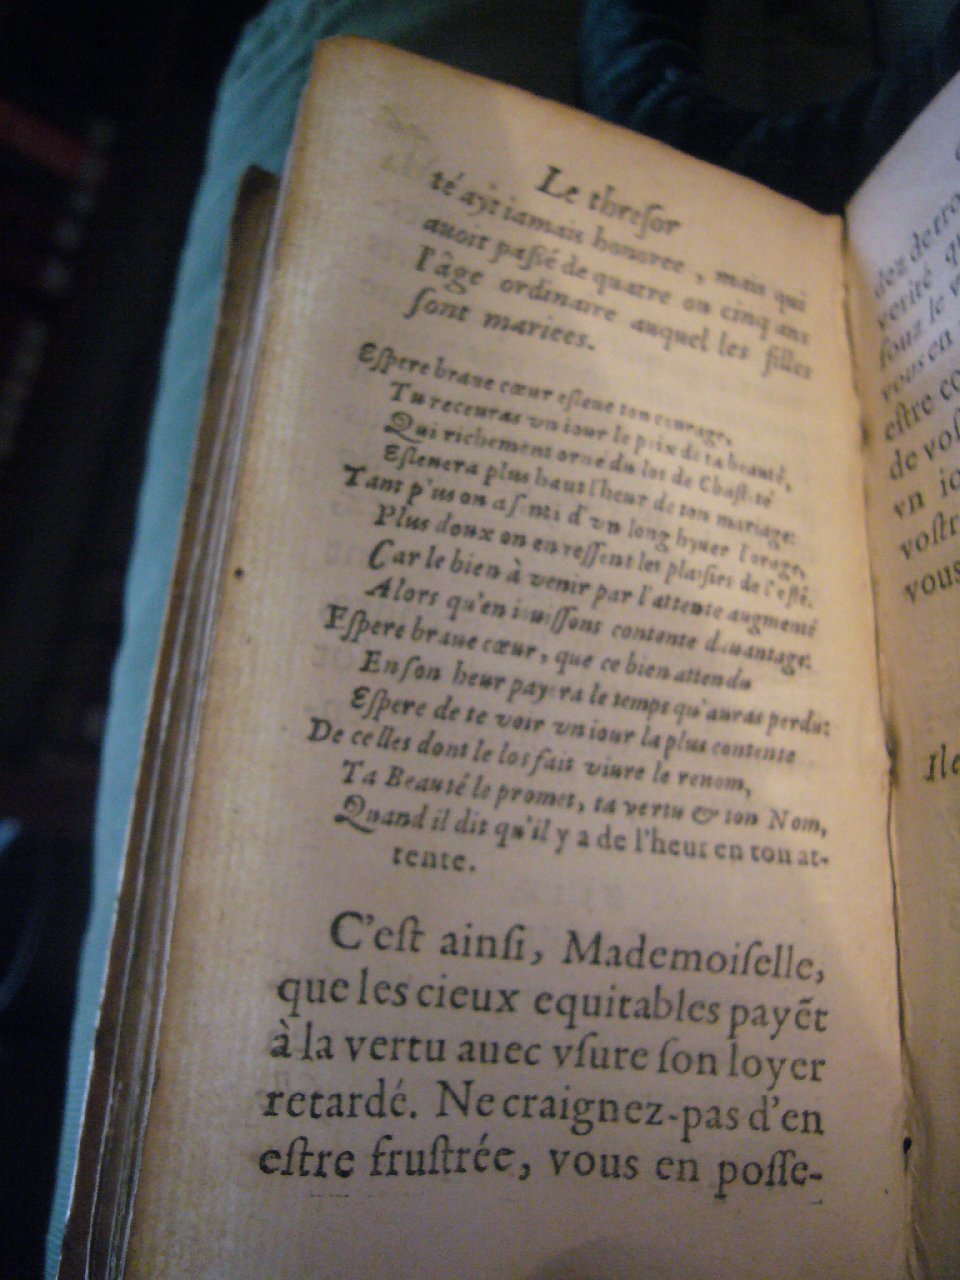 Le threſor
té ayt iamais honoree, mais qui
auoit paſſé de quatre ou cinq ans
l'âge ordinaire auquel les filles
ſont mariees.
Eſpere braue cœur eſleue ton courage,
Tu receuras vn iour le prix de ta beauté,
Qui richement orné du los de Chaſteté
Eſleuera plus haut l'heur de ton mariage:
Tant plus on a ſenti d'vn long hyuer l'orage,
Plus doux on en reſſent les plaiſirs de l'eſté.
Car le bien à venir par l'attente augmenté
Alors qu'en iouiſſons contente dauantage:
Eſpere braue cœur, que ce bien attendu
En ſon heur payera le temps qu'auras perdu:
Eſpere de te voir vn iour la plus contente
De celles dont le los fait viure le renom,
Ta Beauté le promet, ta vertu & ton Nom,
Quand il dit qu'il y a de l'heur en ton at-
tente.
C'eſt ainſi, Mademoiſelle,
que les cieux equitables payẽt
à la vertu auec vſure ſon loyer
retardé. Ne craignez-pas d'en
eſtre fruſtrée, vous en poſſe-
dez de
verité
vous en
eſtre
de
vn
vous